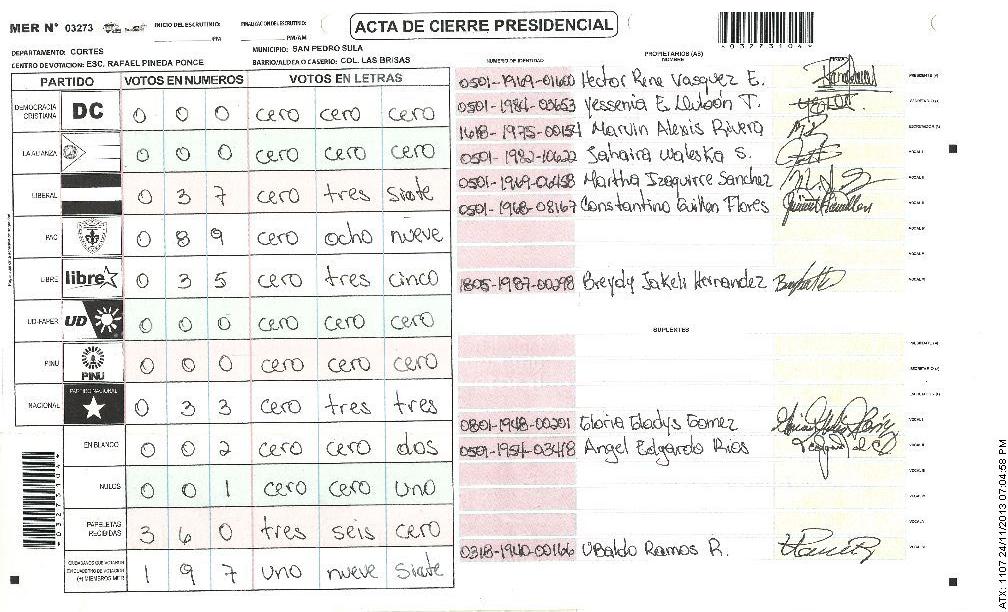 MER N° 03273
INICIO DEL ESCRUTINIO: PM
FINALIZACION DEL ESCRUTINIO: PM/AM
ACTA DE CIERRE PRESIDENCIAL
03273104
DEPARTAMENTO: CORTES
MUNICIPIO: SAN PEDRO SULA
CENTRO DE VOTACION: ESC. RAFAEL PINEDA PONCE
BARRIO/ALDEA O CASERIO: COL. LAS BRISAS
PARTIDO VOTOS EN NUMEROS VOTOS EN LETRAS
DEMOCRACIA CRISTIANA DC 0 0 0 cero cero cero
LA ALIANZA 0 0 0 cero cero cero
LIBERAL 0 3 7 cero tres siete
PAC 0 8 9 cero ocho nueve
LIBRE libre 0 3 5 cero tres cinco
UD-FAPER UD 0 0 0 cero cero cero
PINU PINU 0 0 0 cero cero cero
NACIONAL PARTIDO NACIONAL 0 3 3 cero tres tres
EN BLANCO 0 0 2 cero cero dos
NULOS 0 0 1 cero cero uno
PAPELETAS RECIBIDAS 3 6 0 tres seis cero
CIUDADANOS QUE VOTARON EN CUADERNO DE VOTACION (+) MIEMBROS MER 1 9 7 uno nueve siete
03273104
NUMERO DE IDENTIDAD
PROPIETARIOS (AS)
NOMBRE
FIRMA
0501-1969-01660 Hector Rene Vasquez E.
0501-1984-00653 Yessenia E.
1618-1975-00154 Marvin Alexis Rivera
0501-1982-10622 Sahaira Waleska S.
0501-1969-06458 Martha Izaguirre Sanchez
0501-1968-08167 Constantino Guillen Flores
1805-1987-00298 Breydy Jakeli Hernandez
SUPLENTES
0801-1948-00201 Gloria Gladys Gomez
0501-1954-03418 Angel Edgardo Rios
0318-1940-00166 Ubaldo Ramos R.
ATX: 1107 24/11/2013 07:04:58 PM